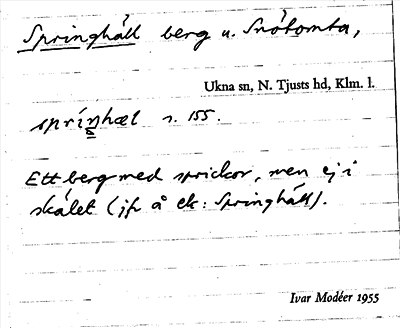 Springhäll berg u. Snötomta,
Ukna sn, N. Tjusts hd, Klm. l.
spriŋhæl s. 155.
Ett berg med sprickor, men ej i
skålet (jfr å ek: Springhäll).
Ivar Modéer 1955